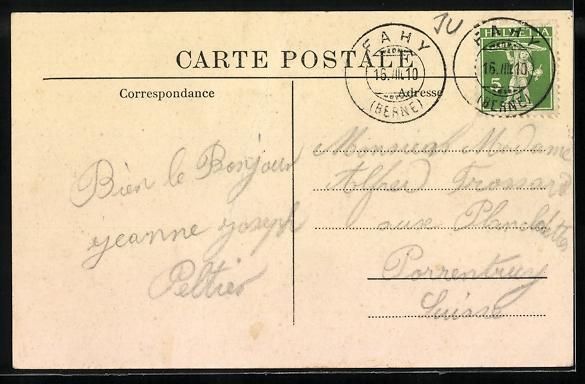 JU
CARTE POSTALE
FAHY
16.VIII.10
(BERNE)
HELVETIA
5
FAHY
16.VIII.10
(BERNE)
Correspondance
Adresse
Bien le Bonjour
jeanne joseph
Peltier
Monsieur Madame
Alfred Frossard
aux Planchettes
Porrentruy
Suisse